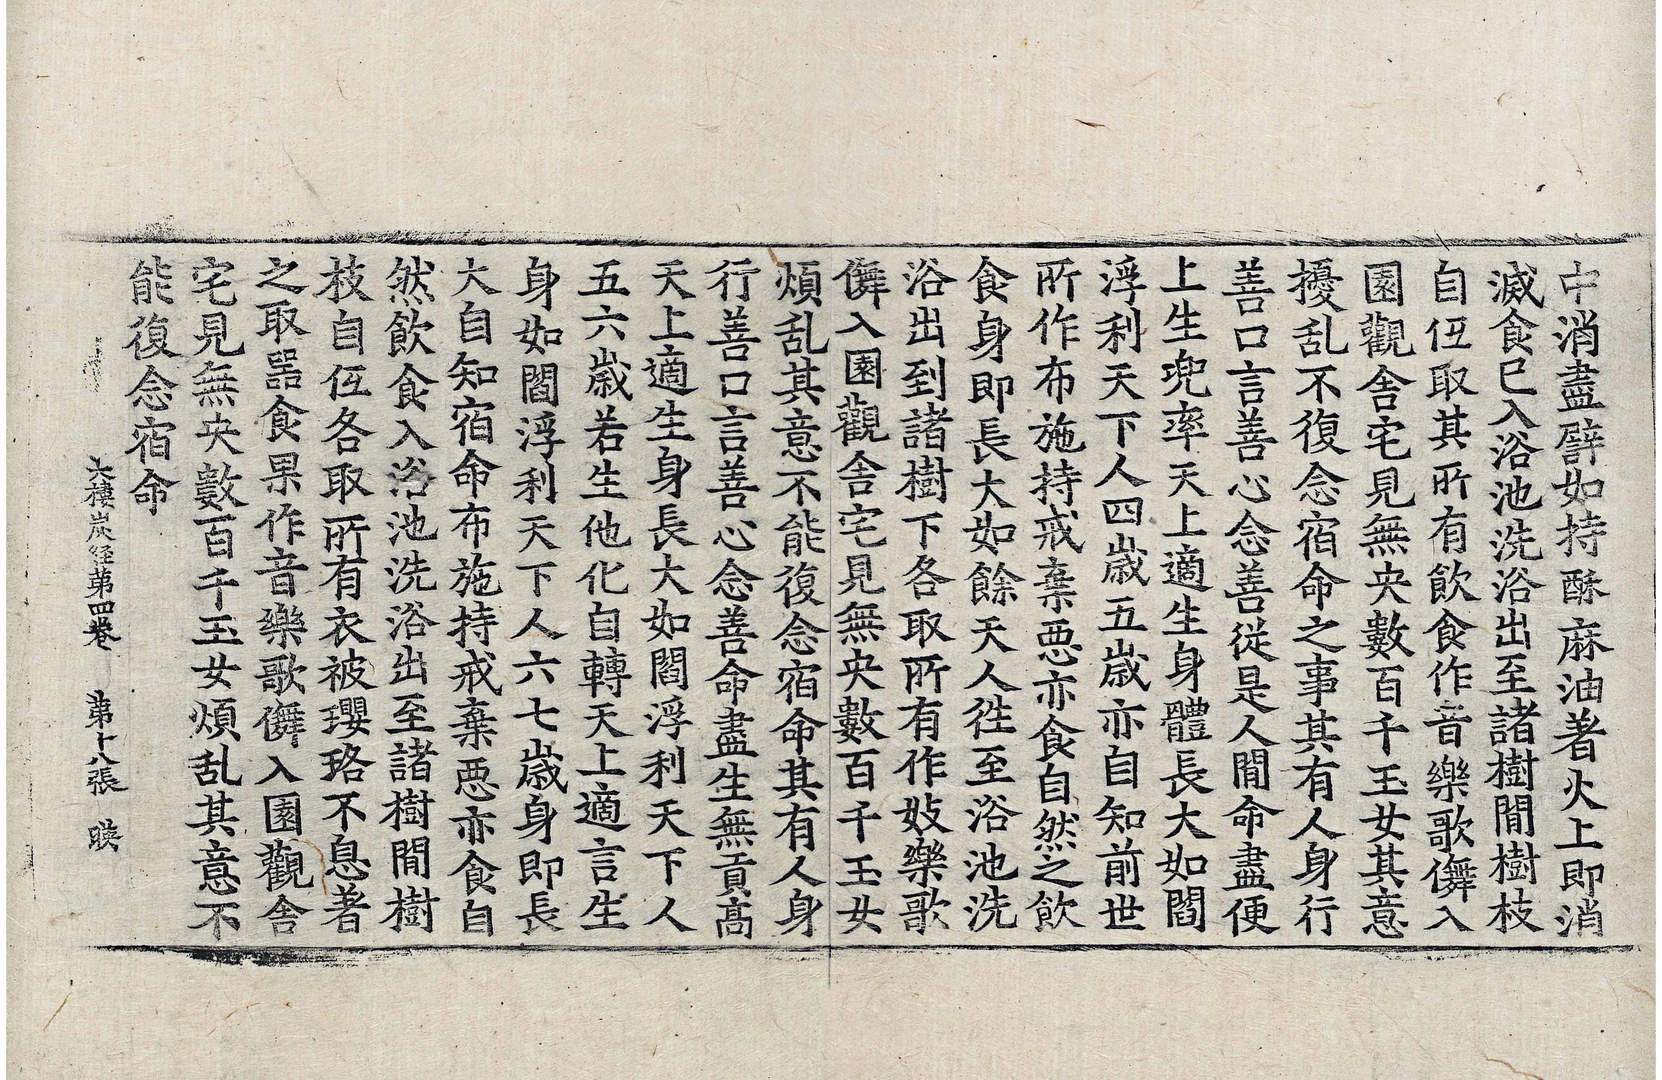 中消盡譬如持酥麻油著火上即消
滅食已入浴池洗浴出至諸樹閒樹枝
自伍取其所有飮食作音樂歌儛入
園觀舍宅見無央數百千玉女其意
擾乱不復念宿命之事其有人身行
善口言善心念善從是人閒命盡便
上生兜率天上適生身體長大如閻
浮利天下人四歲五歲亦自知前世
所作布施持戒棄惡亦食自然之飮
食身即長大如餘天人徃至浴池洗
浴出到諸樹下各取所有作妓樂歌
儛入園觀舍宅見無央數百千玉女
煩乱其意不能復念宿命其有人身
行善口言善心念善命盡生無貢高
天上適生身長大如閻浮利天下人
五六歲若生他化自轉天上適言生
身如閻浮利天下人六七歲身即長
大自知宿命布施持戒棄惡亦食自
然飮食入浴池洗浴出至諸樹閒樹
枝自伍各取所有衣被瓔珞不息著
之取器食果作音樂歌儛入園觀舍
宅見無央數百千玉女煩乱其意不
能復念宿命
大樓炭経第四卷 第十八張 暎